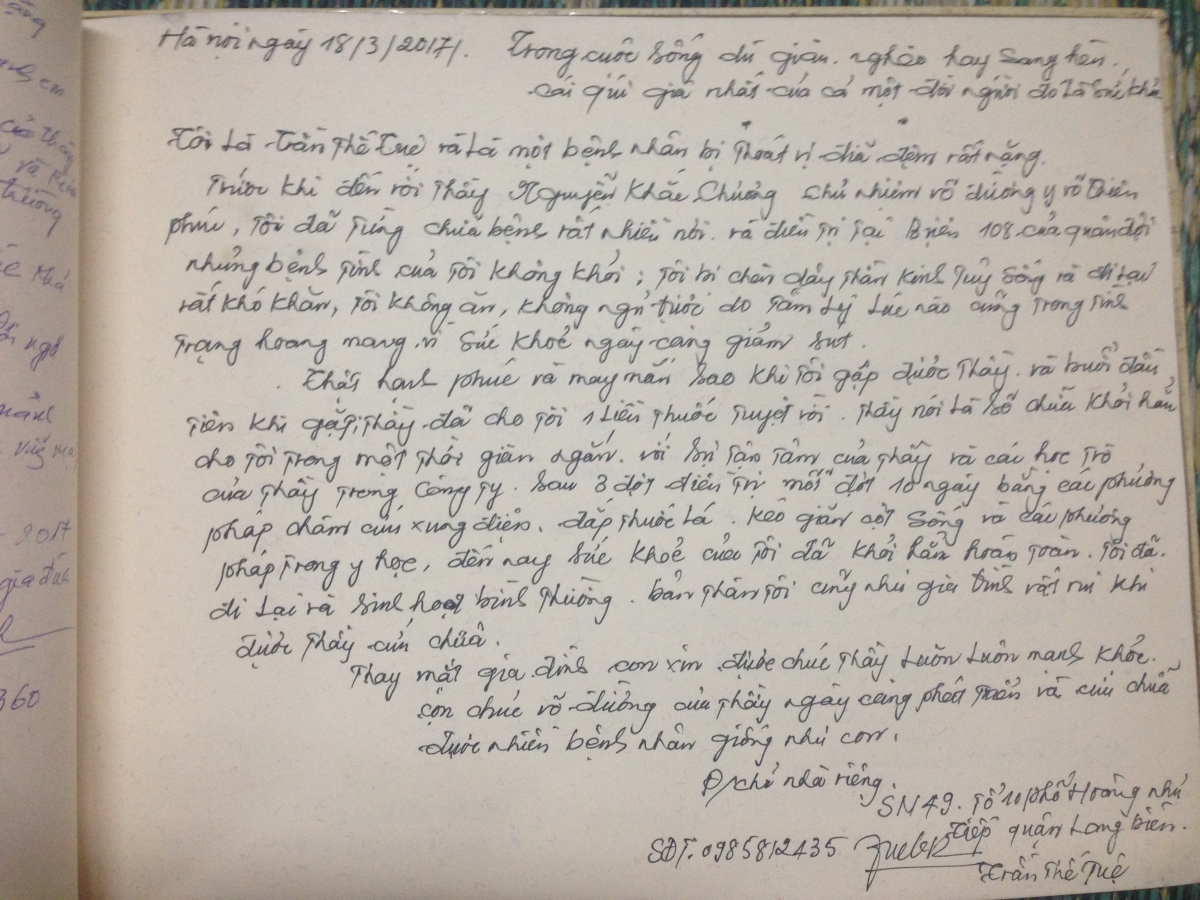 Hà nội ngày 18/3/2017/. Trong cuộc sống dù giàu. nghèo hay sang hèn.
cái quí giá nhất của cả một đời người đó là sức khỏe
Tôi là Trần Thế Tuệ và là một bệnh nhân bị Thoát vị đĩa đệm rất nặng.
Trước khi đến với Thầy Nguyễn Khắc Chương chủ nhiệm võ đường y võ Thiên
phúc, Tôi đã Từng chữa bệnh rất nhiều nơi. và điều Trị Tại Viện 108 của quân đội
nhưng bệnh Tình của Tôi không khỏi; Tôi bị chèn dây Thần kinh Tuỷ sống và đi lại
rất khó khăn, Tôi không ăn, không ngủ được do Tâm Lý Lúc nào cũng Trong Tình
Trạng hoang mang vì Sức khoẻ ngày càng giảm sut.
Thật hạnh phúc và may mắn sao khi Tôi gặp được Thầy. và buổi đầu
Tiên khi gặp, Thầy đã cho Tôi 1 Liều Thuốc Tuyệt vời. Thầy nói Là sẽ chữa khỏi hẳn
cho Tôi Trong một Thời gian ngắn. với sự Tận Tâm của Thầy và các học Trò
của Thầy Trong Công Ty. Sau 3 đợt điều Trị mỗi đợt 10 ngày bằng các phương
pháp châm cứu xung điện. đắp Thuốc Lá. kéo giãn cột Sống và các phương
pháp Trong y học, đến nay Sức khoẻ của Tôi đã khỏi hẳn hoàn Toàn. Tôi đã.
đi Lại và Sinh hoạt bình Thường. bản Thân Tôi cũng như gia đình rất vui khi
được Thầy cứu chữa.
Thay mặt gia đình con xin được chúc Thầy Luôn Luôn mạnh khỏe.
con chúc võ đường của Thầy ngày càng phát Triển và cứu chữa
được nhiều bệnh nhân giống như con.
Đ/chỉ nhà riêng.
SN 49. Tổ 10 phố Hoàng như
Tiếp quận Long Biên.
SĐT. 0985812435
Trần Thế Tuệ
2017
360